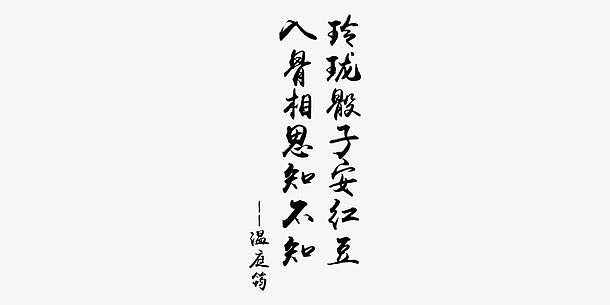 玲珑骰子安红豆
入骨相思知不知
——温庭筠